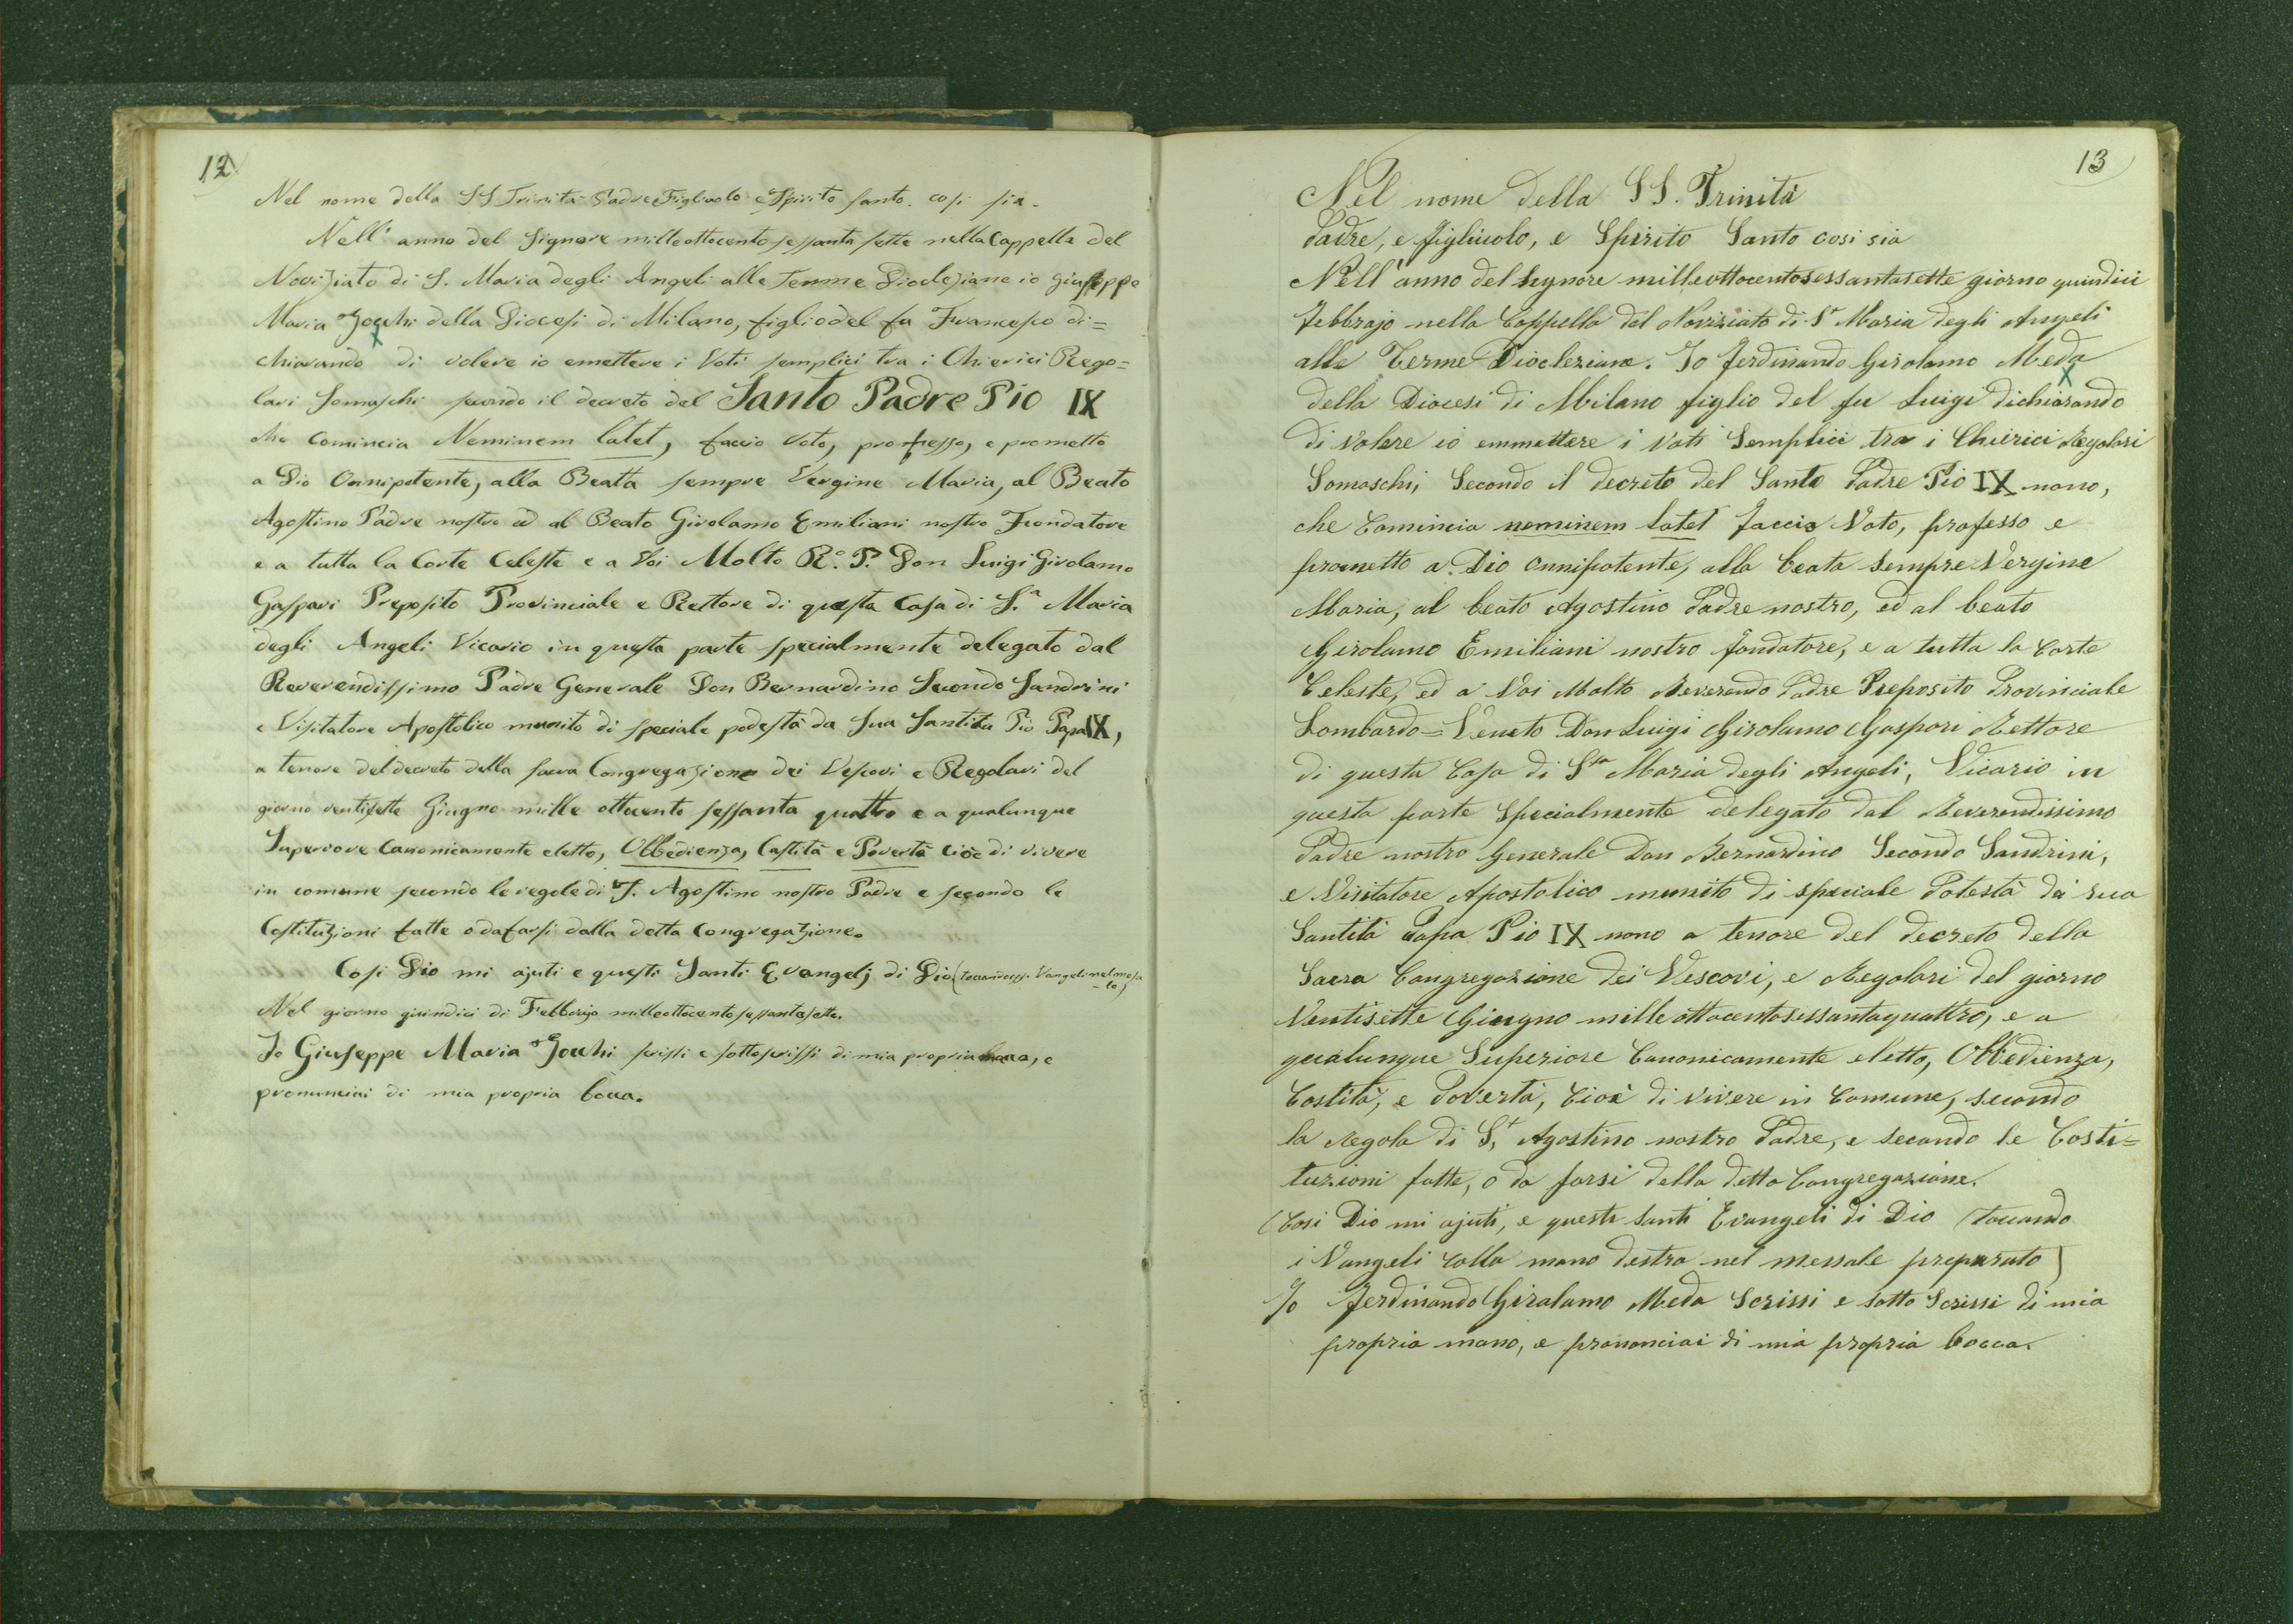 12
Nel nome della SS Trinità Padre Figliuolo e Spirito Santo. così sia.
Nell' anno del Signore milleottocentosessanta sette nella Cappella del
Noviziato di S. Maria degli Angeli alle Terme Diocleziane io Giuseppe
Maria della Diocesi di Milano, figlio del fu Francesco di=
chiarando di volere io emettere i Voti semplici tra i Chierici Rego=
lari Somaschi secondo il decreto del Santo Padre Pio IX
che Comincia Neminem latet, faccio Voto, professo, e prometto
a Dio Onnipotente, alla Beata sempre Vergine Maria, al Beato
Agostino Padre nostro ed al Beato Girolamo Emiliani nostro Fondatore
e a tutta la Corte Celeste e a Voi Molto R.° P. Don Luigi Girolamo
Gaspari Preposito Provinciale e Rettore di questa Casa di S.a Maria
degli Angeli Vicario in questa parte specialmente delegato dal
Reverendissimo Padre Generale Don Bernardino Secondo Sandrini
e Visitatore Apostolico munito di speciale podestà da Sua Santità Pio Papa IX,
a tenore del decreto della sacra Congregazione dei Vescovi e Regolari del
giorno ventisette Giugno mille ottocento sessanta quattro e a qualunque
Superiore Canonicamente eletto, Obbedienza, Castità e Povertà cioè di vivere
in comune secondo le regole di S. Agostino nostro Padre e secondo le
Costituzioni fatte o da farsi dalla detta Congregazione.
Così Dio mi ajuti e questi Santi Evangelj di Dio (toccandossi Vangeli nel messa
-le)
Nel giorno quindici di Febbrajo milleottocentosessantasette.
Io Giuseppe Maria scrissi e sottoscrissi di mia propria mano, e
pronunciai di mia propria bocca.
13
Nel nome della SS. Trinità
Padre, e figliuolo, e Spirito Santo così sia
Nell'anno del Signore milleottocentosessantasette giorno quindici
febbrajo nella Cappella del Noviziato di Sa Maria degli Angeli
alle Terme Diocleziane. Io Ferdinando Girolamo Meda
della Diocesi di Milano figlio del fu Luigi dichiarando
di volere io emmettere i Voti Semplici tra i Chierici Regolari
Somaschi, Secondo il decreto del Santo Padre Pio IX nono,
che Comincia neminem latet faccio Voto, professo e
prometto a Dio onnipotente, alla beata sempre Vergine
Maria, al beato Agostino Padre nostro, ed al beato
Girolamo Emiliani nostro fondatore, e a tutta la Corte
Celeste, ed a Voi Molto Reverendo Padre Preposito Provinciale
Lombardo=Veneto Don Luigi Girolamo Gaspari Rettore
di questa Casa di Sta Maria degli Angeli, Vicario in
questa parte Specialmente delegato dal Reverendissimo
Padre nostro Generale Don Bernardino Secondo Sandrini,
e Visitatore Apostolico munito di speciale Potestà da sua
Santità Papa Pio IX nono a tenore del decreto della
Sacra Congregazione dei Vescovi, e Regolari del giorno
Ventisette Giugno mille ottocentosessantaquattro, e a
qualunque Superiore Canonicamente eletto, Obbedienza,
Castità, e Povertà, Cioè di vivere in Comune, secondo
la Regola di S.t Agostino nostro Padre, e secondo le Costi=
tuzioni fatte, o da farsi della detta Congregazione.
Così Dio mi ajuti, e questi Santi Evangeli di Dio (toccando
i Vangeli colla mano destra nel messale preparato)
Io Ferdinando Girolamo Meda Scrissi e sotto Scrissi di mia
propria mano, e prononciai di mia propria bocca.